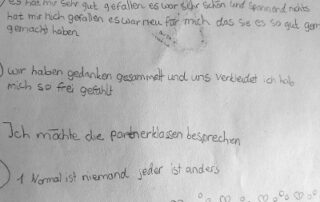 es hat mir sehr gut gefallen es war sehr schön und spannend nichts
hat mir nich gefallen es war neu für mich das sie es so gut gem
gemacht haben
) wir haben gedanken gesammelt und uns verkleidet ich hab
mich so frei gefühlt
Ich möchte die partnerklassen besprechen
) 1 Normal ist niemand jeder ist anders